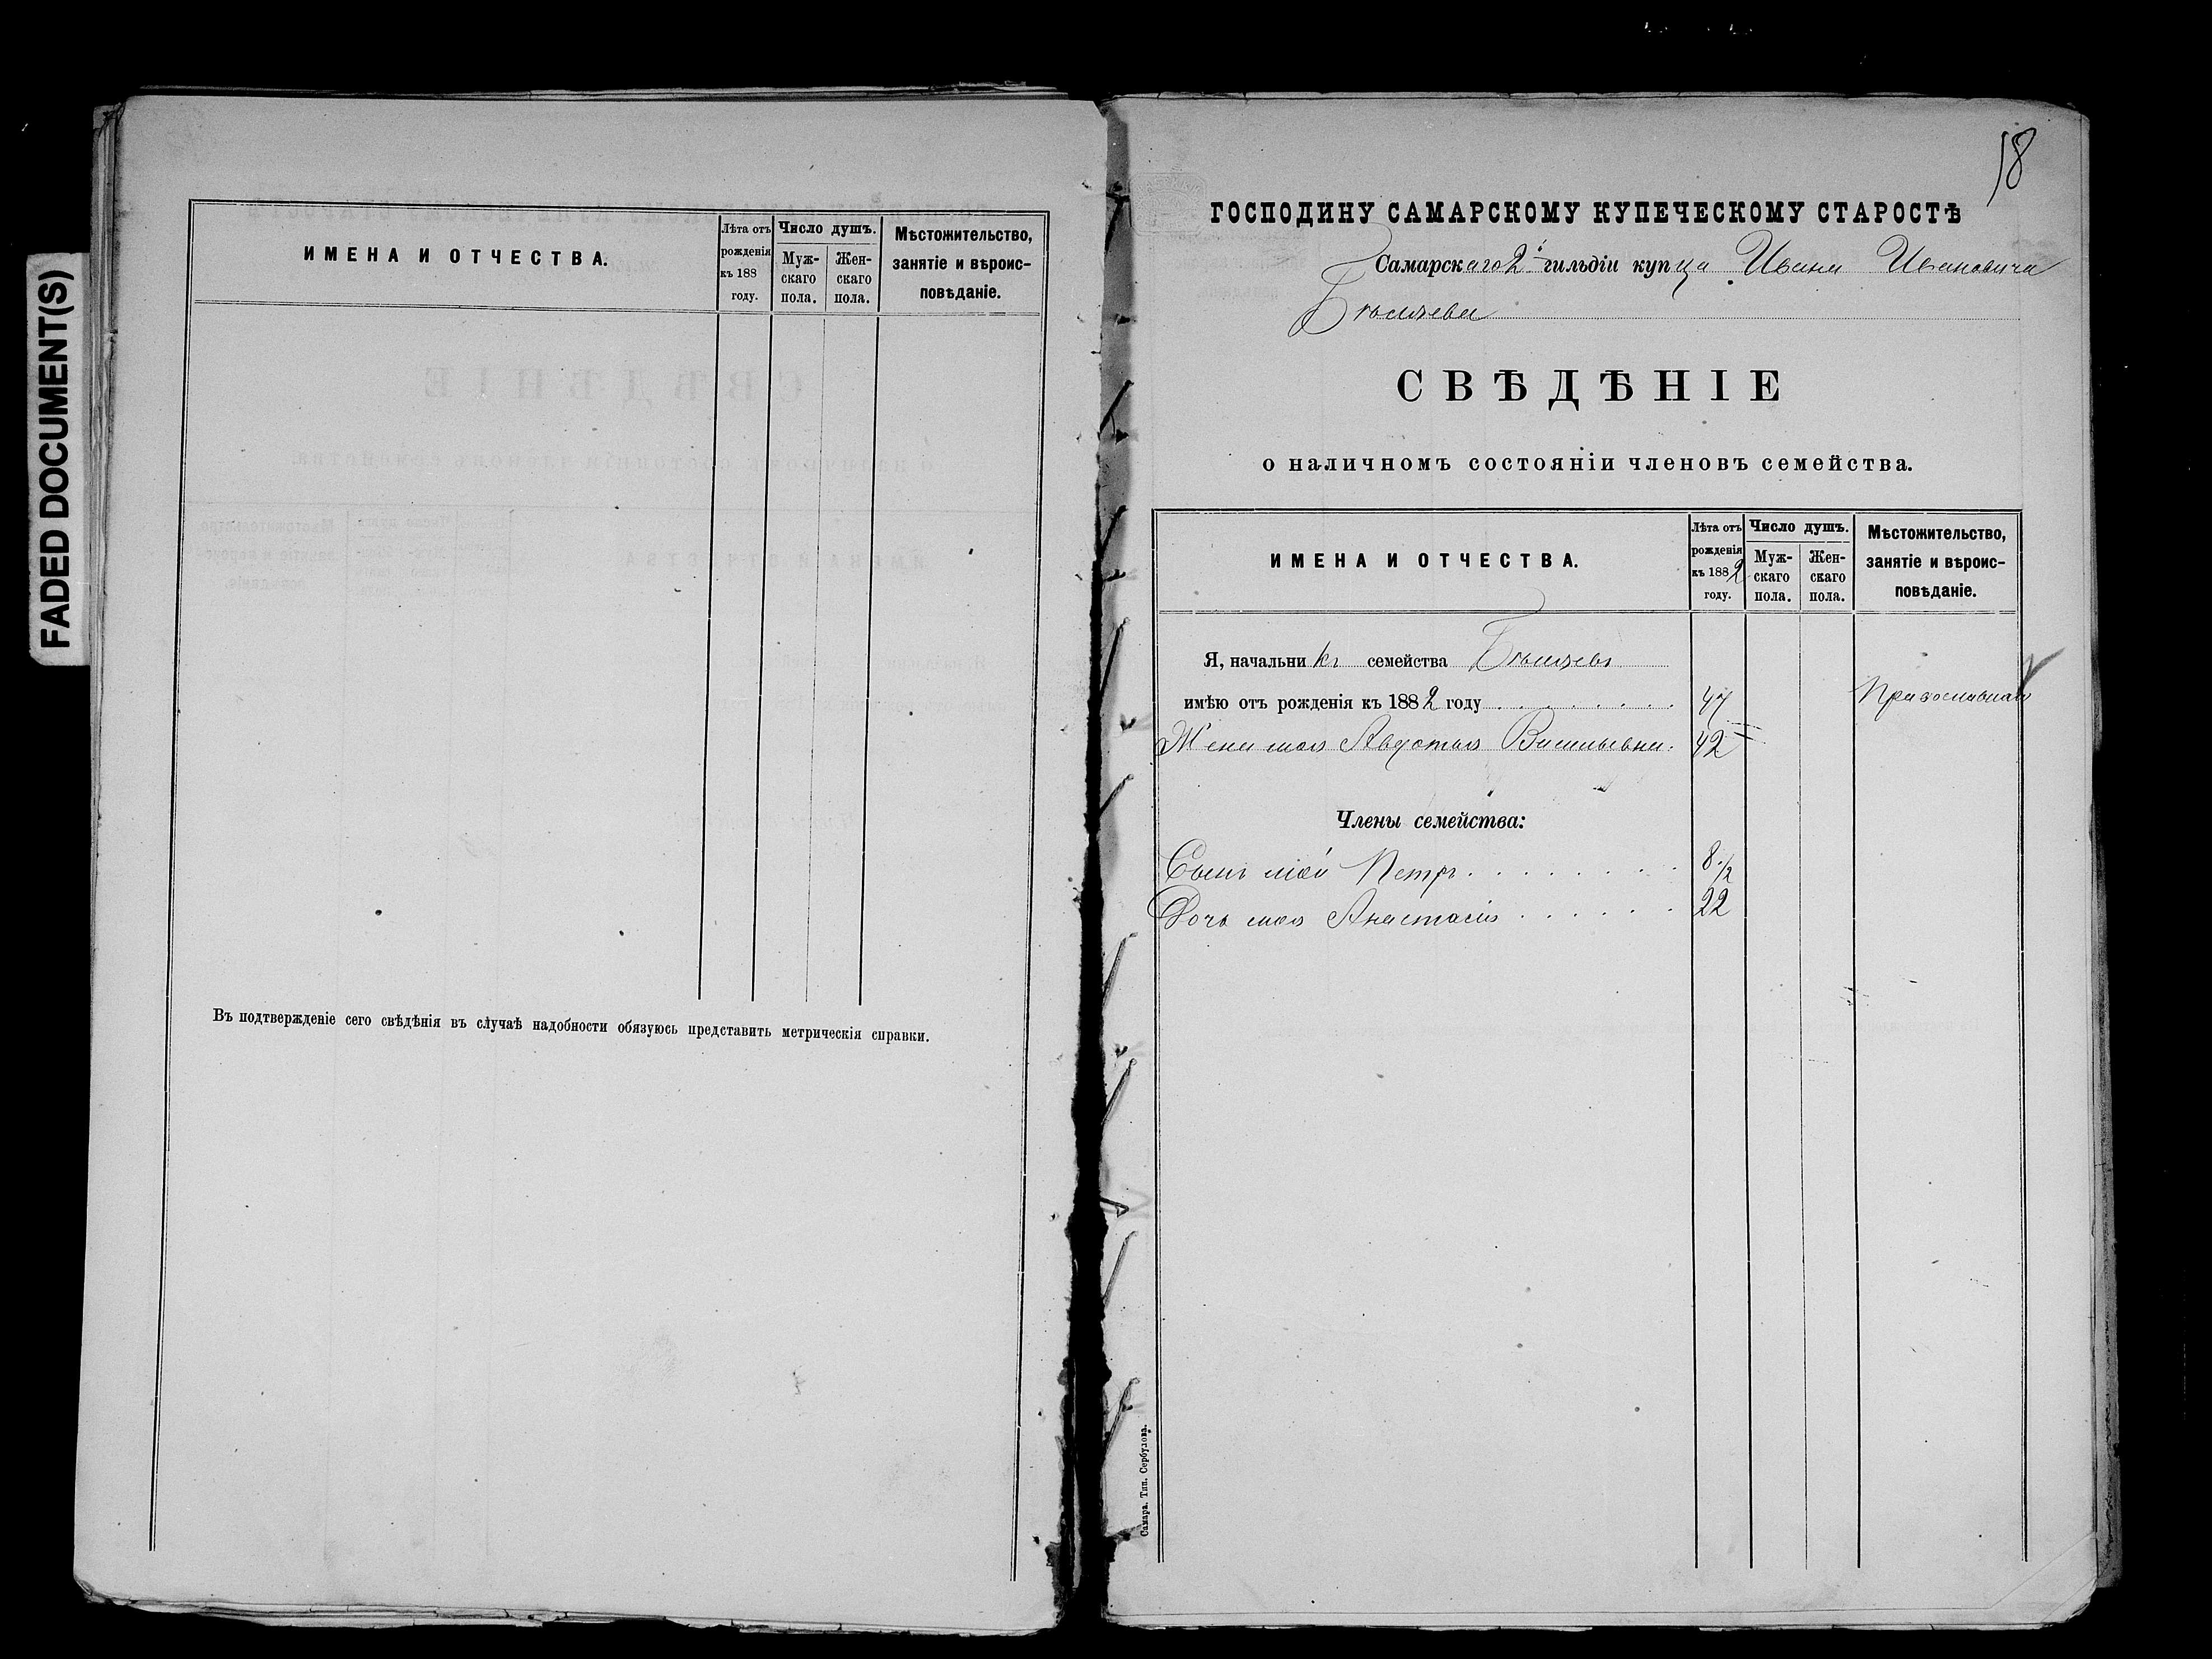 FADED DOCUMENT(S)
ИМЕНА И ОТЧЕСТВА.
Лѣта отъ рожденія къ 188 году.
Число душъ.
Мужскаго пола.
Женскаго пола.
Мѣстожительство, занятіе и вѣроисповѣданіе.
Въ подтвержденіе сего свѣдѣнія въ случаѣ надобности обязуюсь представить метрическія справки.
18
ГОСПОДИНУ САМАРСКОМУ КУПЕЧЕСКОМУ СТАРОСТѢ
Самарскаго 2й гильдіи купца Ивана Ивановича
Бѣляева
СВѢДѢНІЕ
о наличномъ состояніи членовъ семейства.
ИМЕНА И ОТЧЕСТВА.
Лѣта отъ рожденія къ 1882 году.
Число душъ.
Муж-скаго пола.
Жен-скаго пола.
Мѣстожительство, занятіе и вѣроис-повѣданіе.
Я, начальникъ семейства Бѣляевъ
имѣю отъ рожденія къ 1882 году . . . . . . . . 47 Православная
Жена моя Авдотья Васильевна. 42
Члены семейства:
Сынъ мой Петръ . . . . . . . . 8 1/2
Дочь моя Анастасія . . . . . . 22
Самара. Тип. Сербулова.